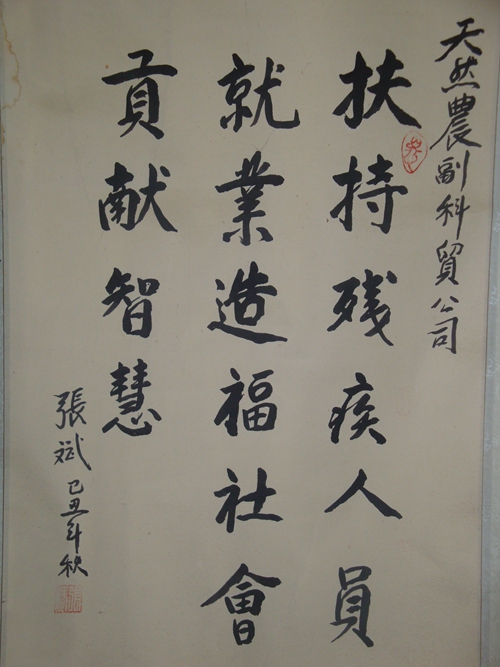 天然農副科貿公司
扶持残疾人員
就業造福社會
貢献智慧
張斌 己丑年秋